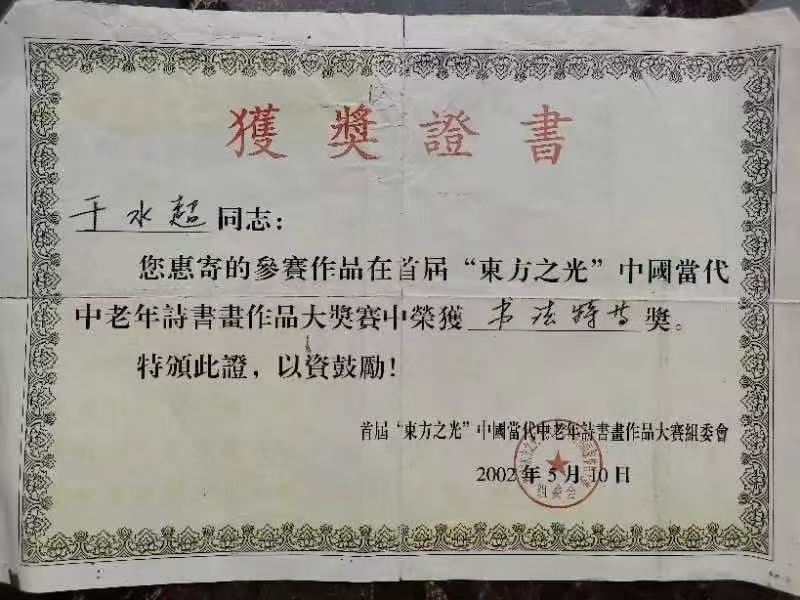 獲獎證書
于水超同志：
您惠寄的參賽作品在首届“東方之光”中國當代
中老年詩書畫作品大獎賽中榮獲 书法特等 奬。
特頒此證，以資鼓勵！
首届“東方之光”中國當代中老年詩書畫作品大賽組委會
2002年5月10日
组委会